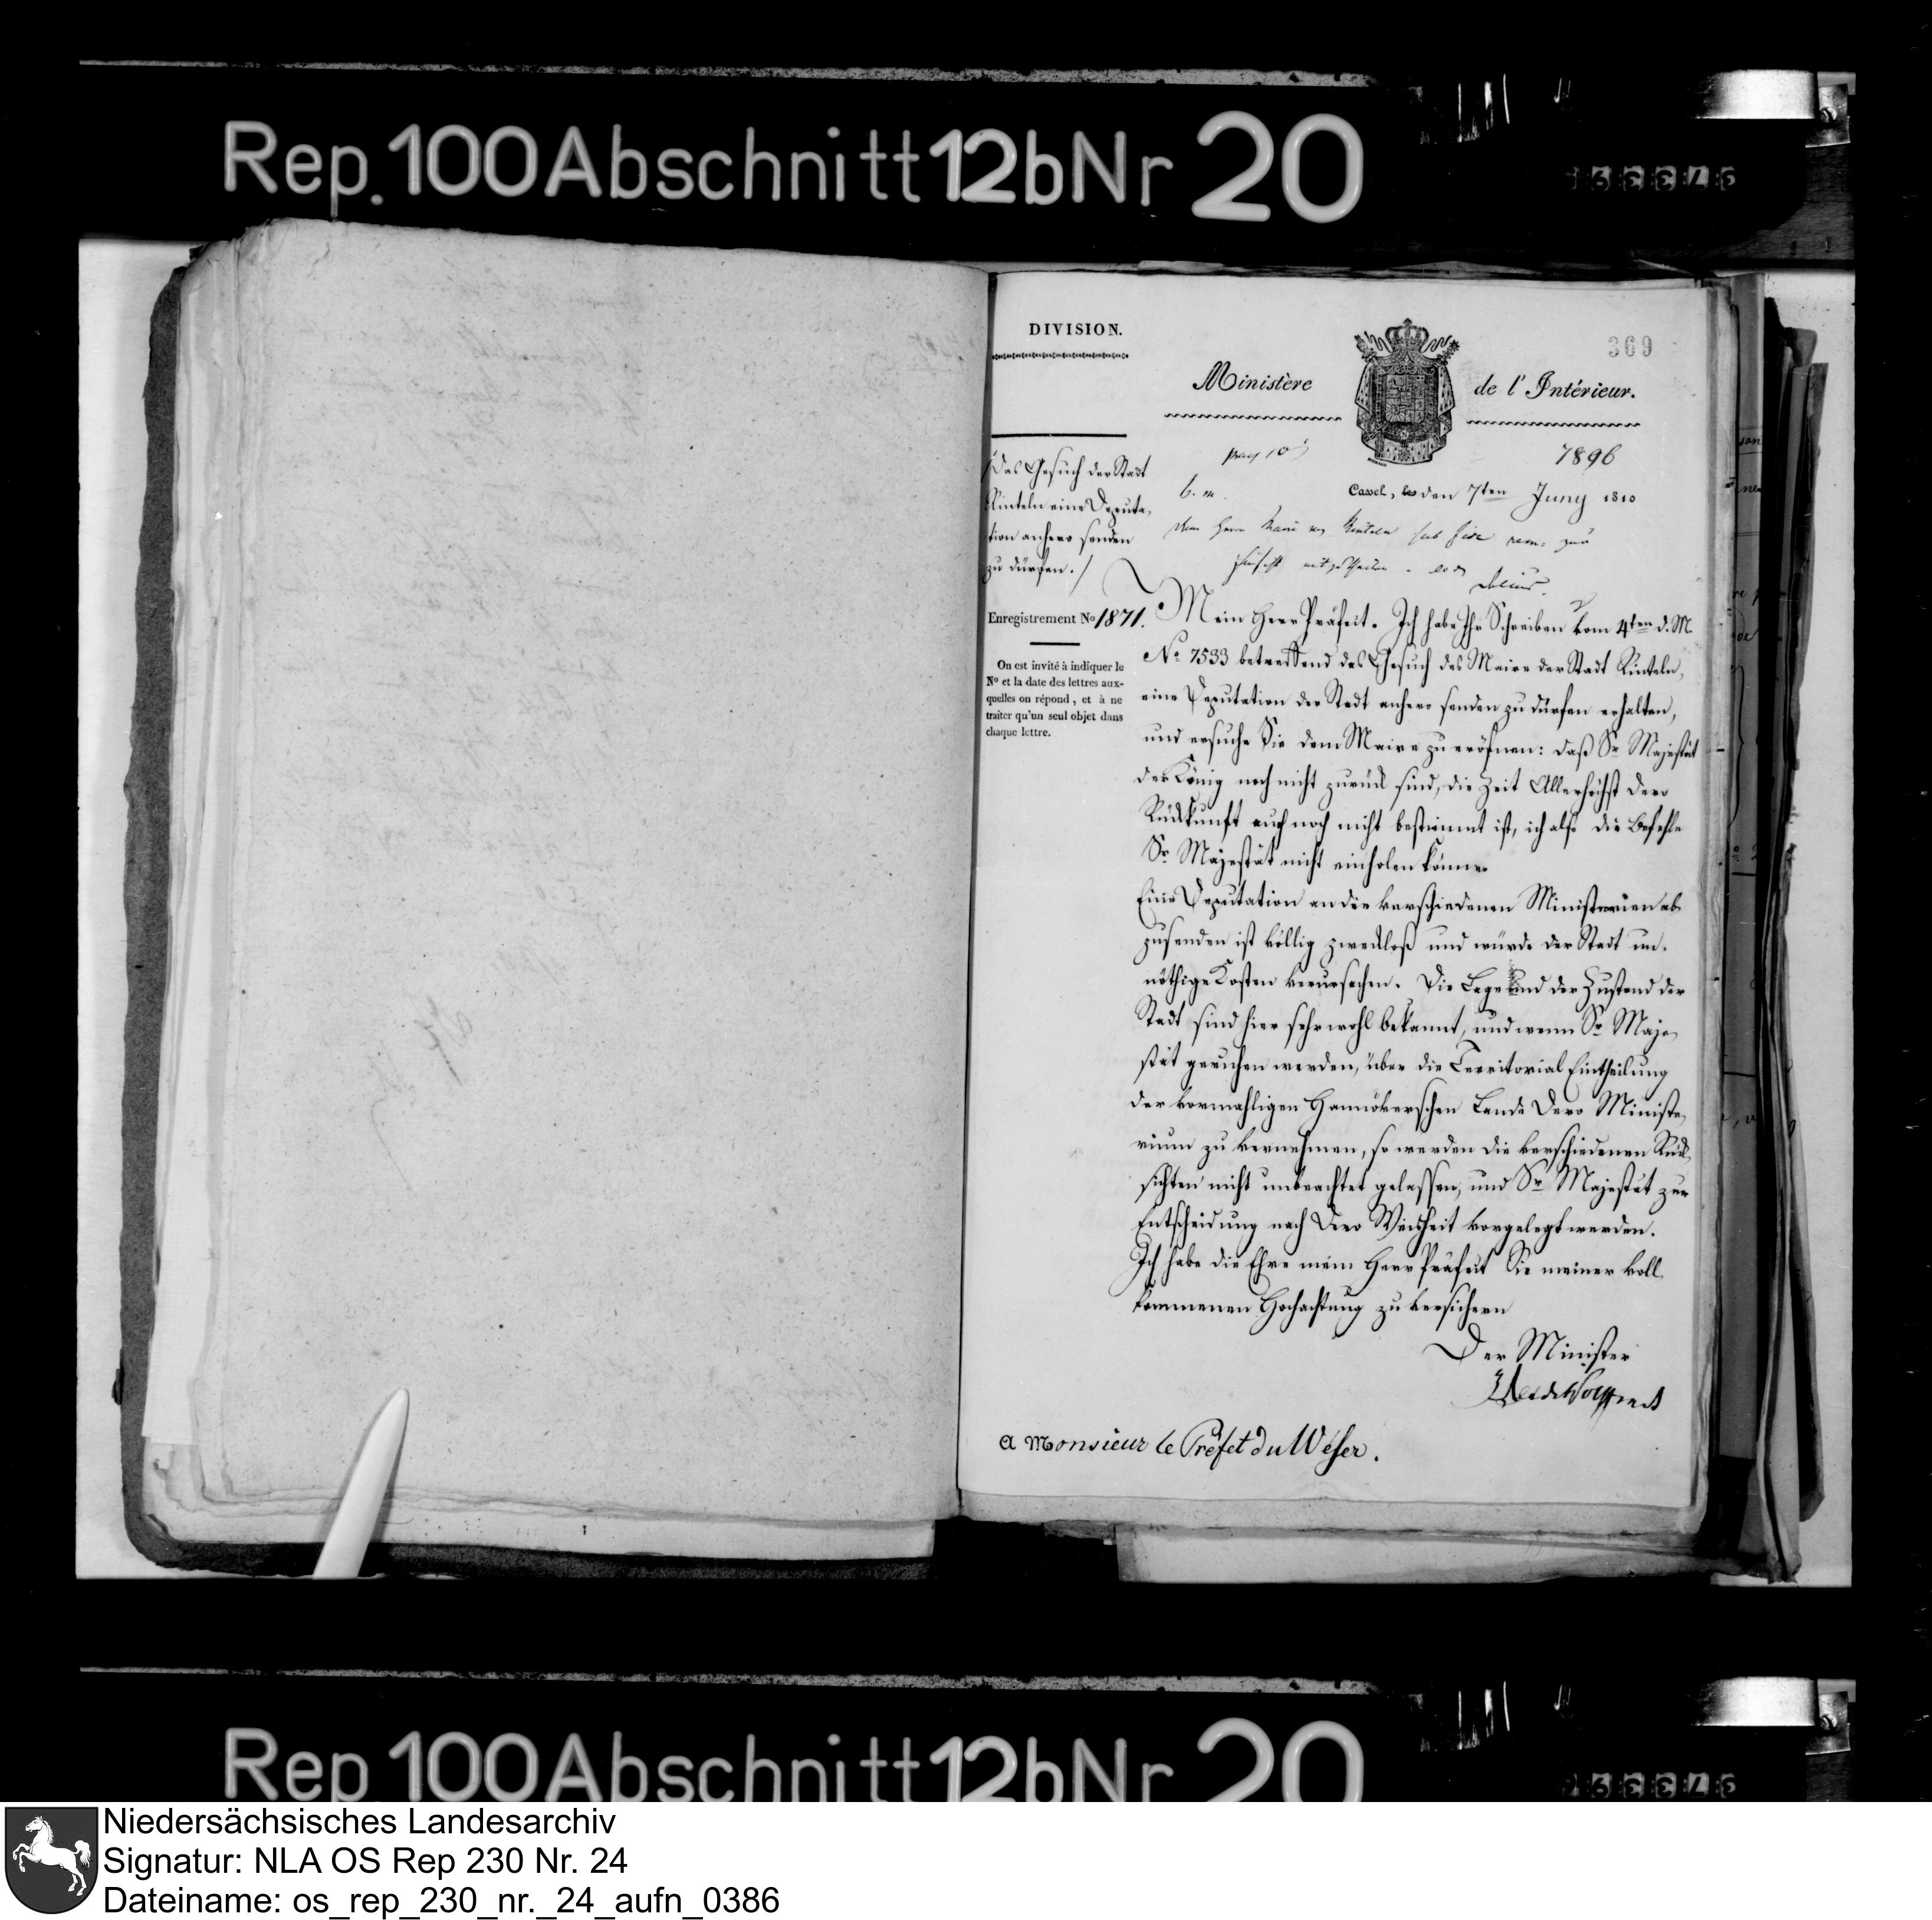 Rep. 100 Abschnitt 12b Nr 20
DIVISION.
369
Ministère de l'Intérieur.
7896
Cassel, den 7ten Juny 1810
Das Gesuch der Stadt
Rinteln eine Deputa-
tion anhero senden
zu dürfen./
b. m.
dem Herrn Maire von Rinteln sub fide rem. zur
Einsicht mitzutheilen.
Delius.
Enregistrement No 1871.
On est invité à indiquer le
No et la date des lettres aux-
quelles on répond, et à ne
traiter qu'un seul objet dans
chaque lettre.
Mein Herr Präfect. Ich habe Ihr Schreiben vom 4ten d. M.
No 7533 betreffend das Gesuch des Maire der Stadt Rinteln,
eine Deputation der Stadt anhero senden zu dürfen erhalten,
und ersuche Sie dem Maire zu eröfnen: daß Sr Majestät
der König noch nicht zurück sind, die Zeit Allerhöchst Dero
Rückkunft auch noch nicht bestimmt ist, ich also die Befehle
Sr Majestät nicht einholen könne.
Eine Deputation an die verschiedenen Ministerien ab
zusenden ist völlig zwecklos und würde der Stadt un-
nöthige Kosten verursachen. Die Lage und der Zustand der
Stadt sind hier sehr wohl bekannt, und wenn Sr Maje-
stät geruhen werden, über die Territorial Eintheilung
der vormahligen Hannöverschen Lande Dero Ministe-
rium zu vernehmen, so werden die verschiedenen Rück-
sichten nicht unbeachtet gelassen, und Sr Majestät zur
Entscheidung nach Dero Weisheit vorgelegt werden.
Ich habe die Ehre mein Herr Präfect Sie meiner voll-
kommenen Hochachtung zu versichern
Der Minister
a Monsieur le Préfet du Wéser.
Rep. 100 Abschnitt 12b Nr 20
Niedersächsisches Landesarchiv
Signatur: NLA OS Rep 230 Nr. 24
Dateiname: os_rep_230_nr._24_aufn_0386